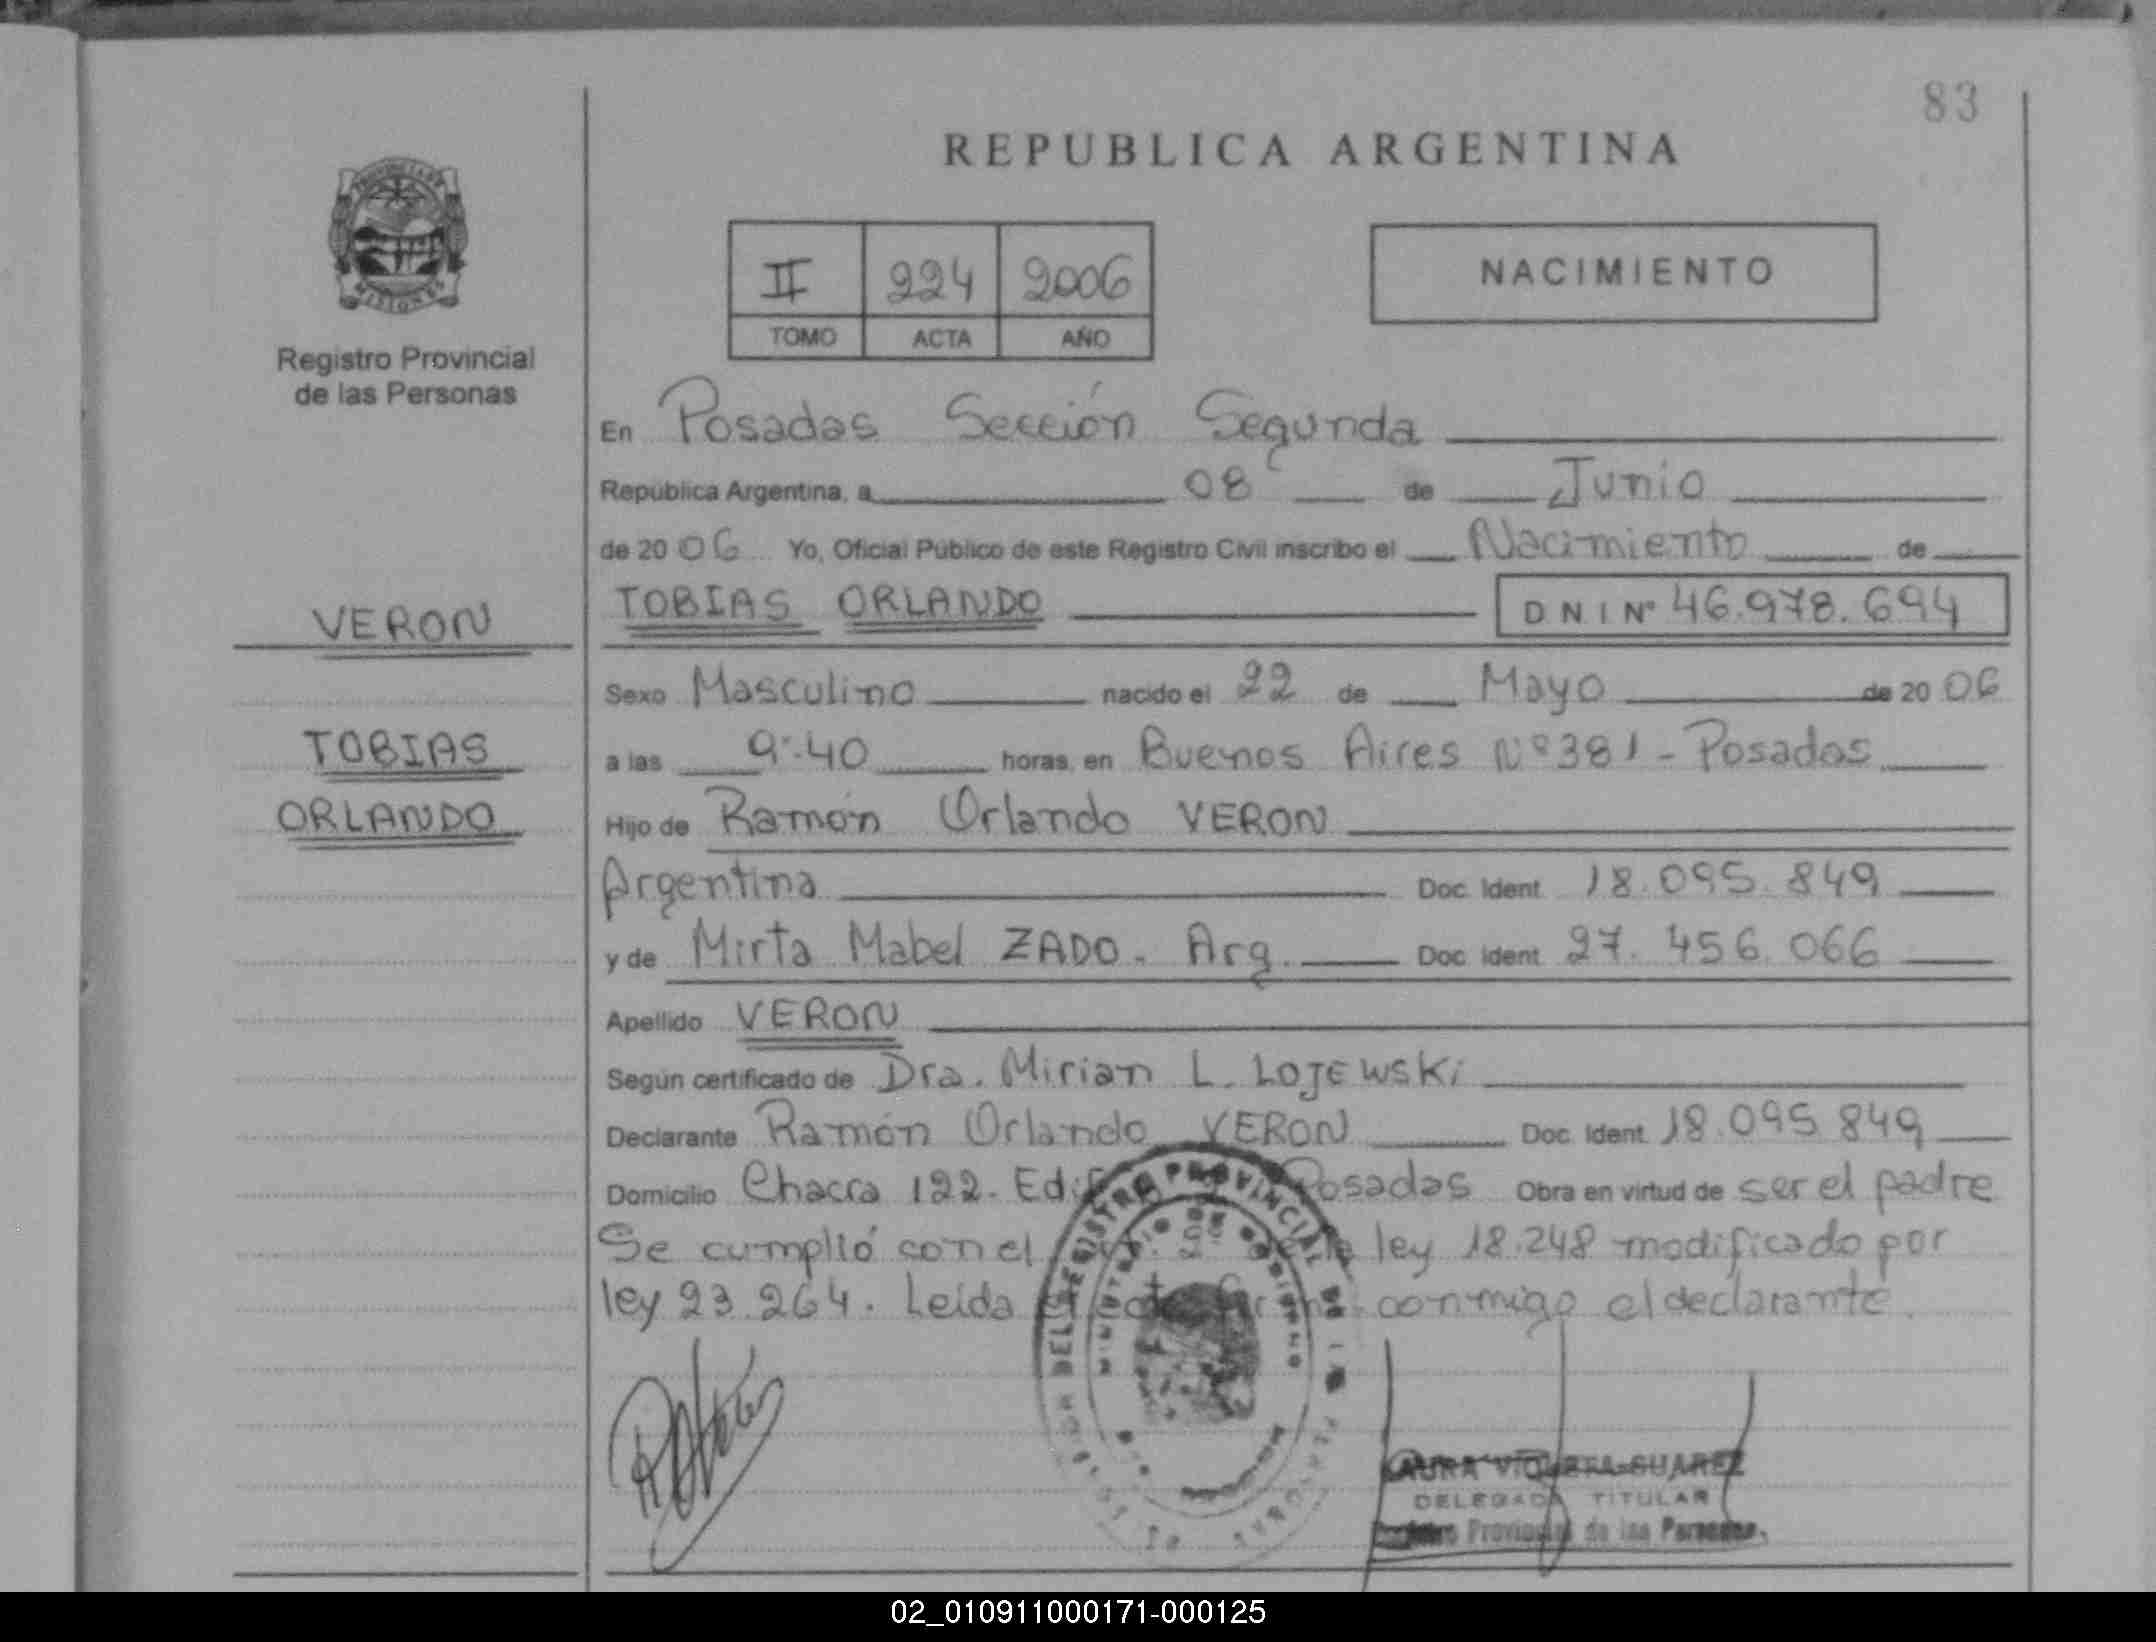 83
REPUBLICA ARGENTINA
PROVINCIA DE
MISIONES
Registro Provincial
de las Personas
II 224 2006
TOMO ACTA AÑO
NACIMIENTO
En Posadas Sección Segunda
República Argentina, a 08 de Junio
de 2006 Yo, Oficial Público de este Registro Civil inscribo el Nacimiento de
VERON
TOBIAS ORLANDO
TOBIAS ORLANDO DNI Nº 46.978.694
Sexo Masculino nacido el 22 de Mayo de 2006
a las 9:40 horas, en Buenos Aires Nº 381 - Posadas
Hijo de Ramón Orlando VERON
Argentina Doc. Ident. 18.095.849
y de Mirta Mabel ZADO. Arg. Doc. Ident. 27.456.066
Apellido VERON
Según certificado de Dra. Mirian L. LOJEWSKi
Declarante Ramón Orlando VERON Doc. Ident. 18.095.849
Domicilio Chacra 122. Posadas Obra en virtud de ser el padre
Se cumplió con el ley 18.248 modificado por
ley 23.264. Leída conmigo el declarante.
REGISTRO PROVINCIAL DE
MINISTERIO DE GOBIERNO
SUAREZ
DELEGADA TITULAR
Registro Provincial de las Personas
02_010911000171-000125